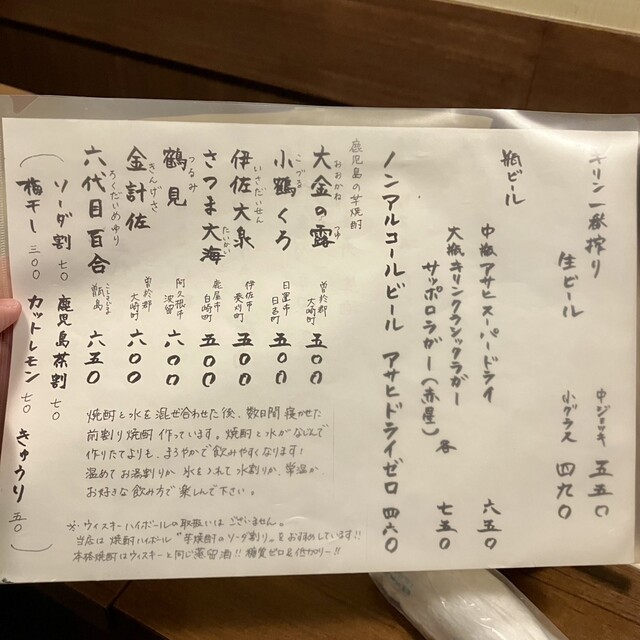 キリン一番搾り
生ビール
中ジョッキ 五五〇
小グラス 四九〇
瓶ビール
中瓶アサヒスーパードライ 六五〇
大瓶キリンクラシックラガー
サッポロラガー(赤星) 各 七五〇
ノンアルコールビール アサヒドライゼロ 四六〇
鹿児島の芋焼酎
大金の露 おおかね つゆ 曽於郡 大崎町 五〇〇
小鶴くろ こづる 日置市 日吉町 五〇〇
伊佐大泉 いさだいせん 伊佐市 菱刈町 五〇〇
さつま大海 たいかい 鹿屋市 白崎町 五〇〇
鶴見 つるみ 阿久根市 波留 六〇〇
金計佐 きんげさ 曽於郡 大崎町 六〇〇
六代目百合 ろくだいめゆり こしきじま 甑島 六五〇
ソーダ割 七〇 鹿児島茶割 七〇
(梅干し 三〇〇 カットレモン 七〇 きゅうり 五〇)
焼酎と水を混ぜ合わせた後、数日間寝かせた
前割り焼酎作っています。焼酎と水がなじんで
作りたてよりも、まろやかで飲みやすくなります!
温めてお湯割りか、氷を入れて水割りか、常温か、
お好きな飲み方で楽しんで下さい。
※ウィスキーハイボールの取扱いはございません。
当店は焼酎ハイボール"芋焼酎のソーダ割り"をおすすめしています!!
本格焼酎はウィスキーと同じ蒸留酒!!糖質ゼロ&低カロリー!!